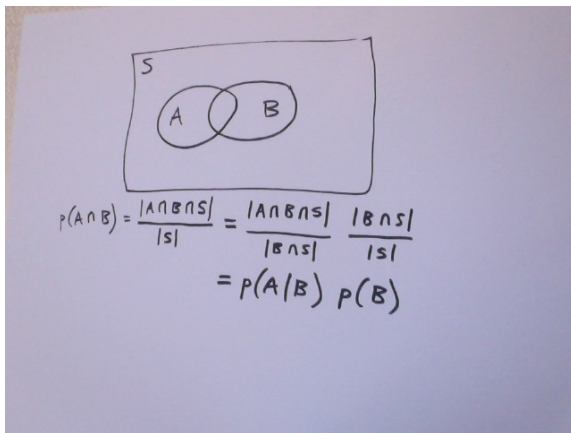 S
A B
p(A∩B) = |A∩B∩S| / |S| = |A∩B∩S| / |B∩S| |B∩S| / |S|
= p(A|B) p(B)